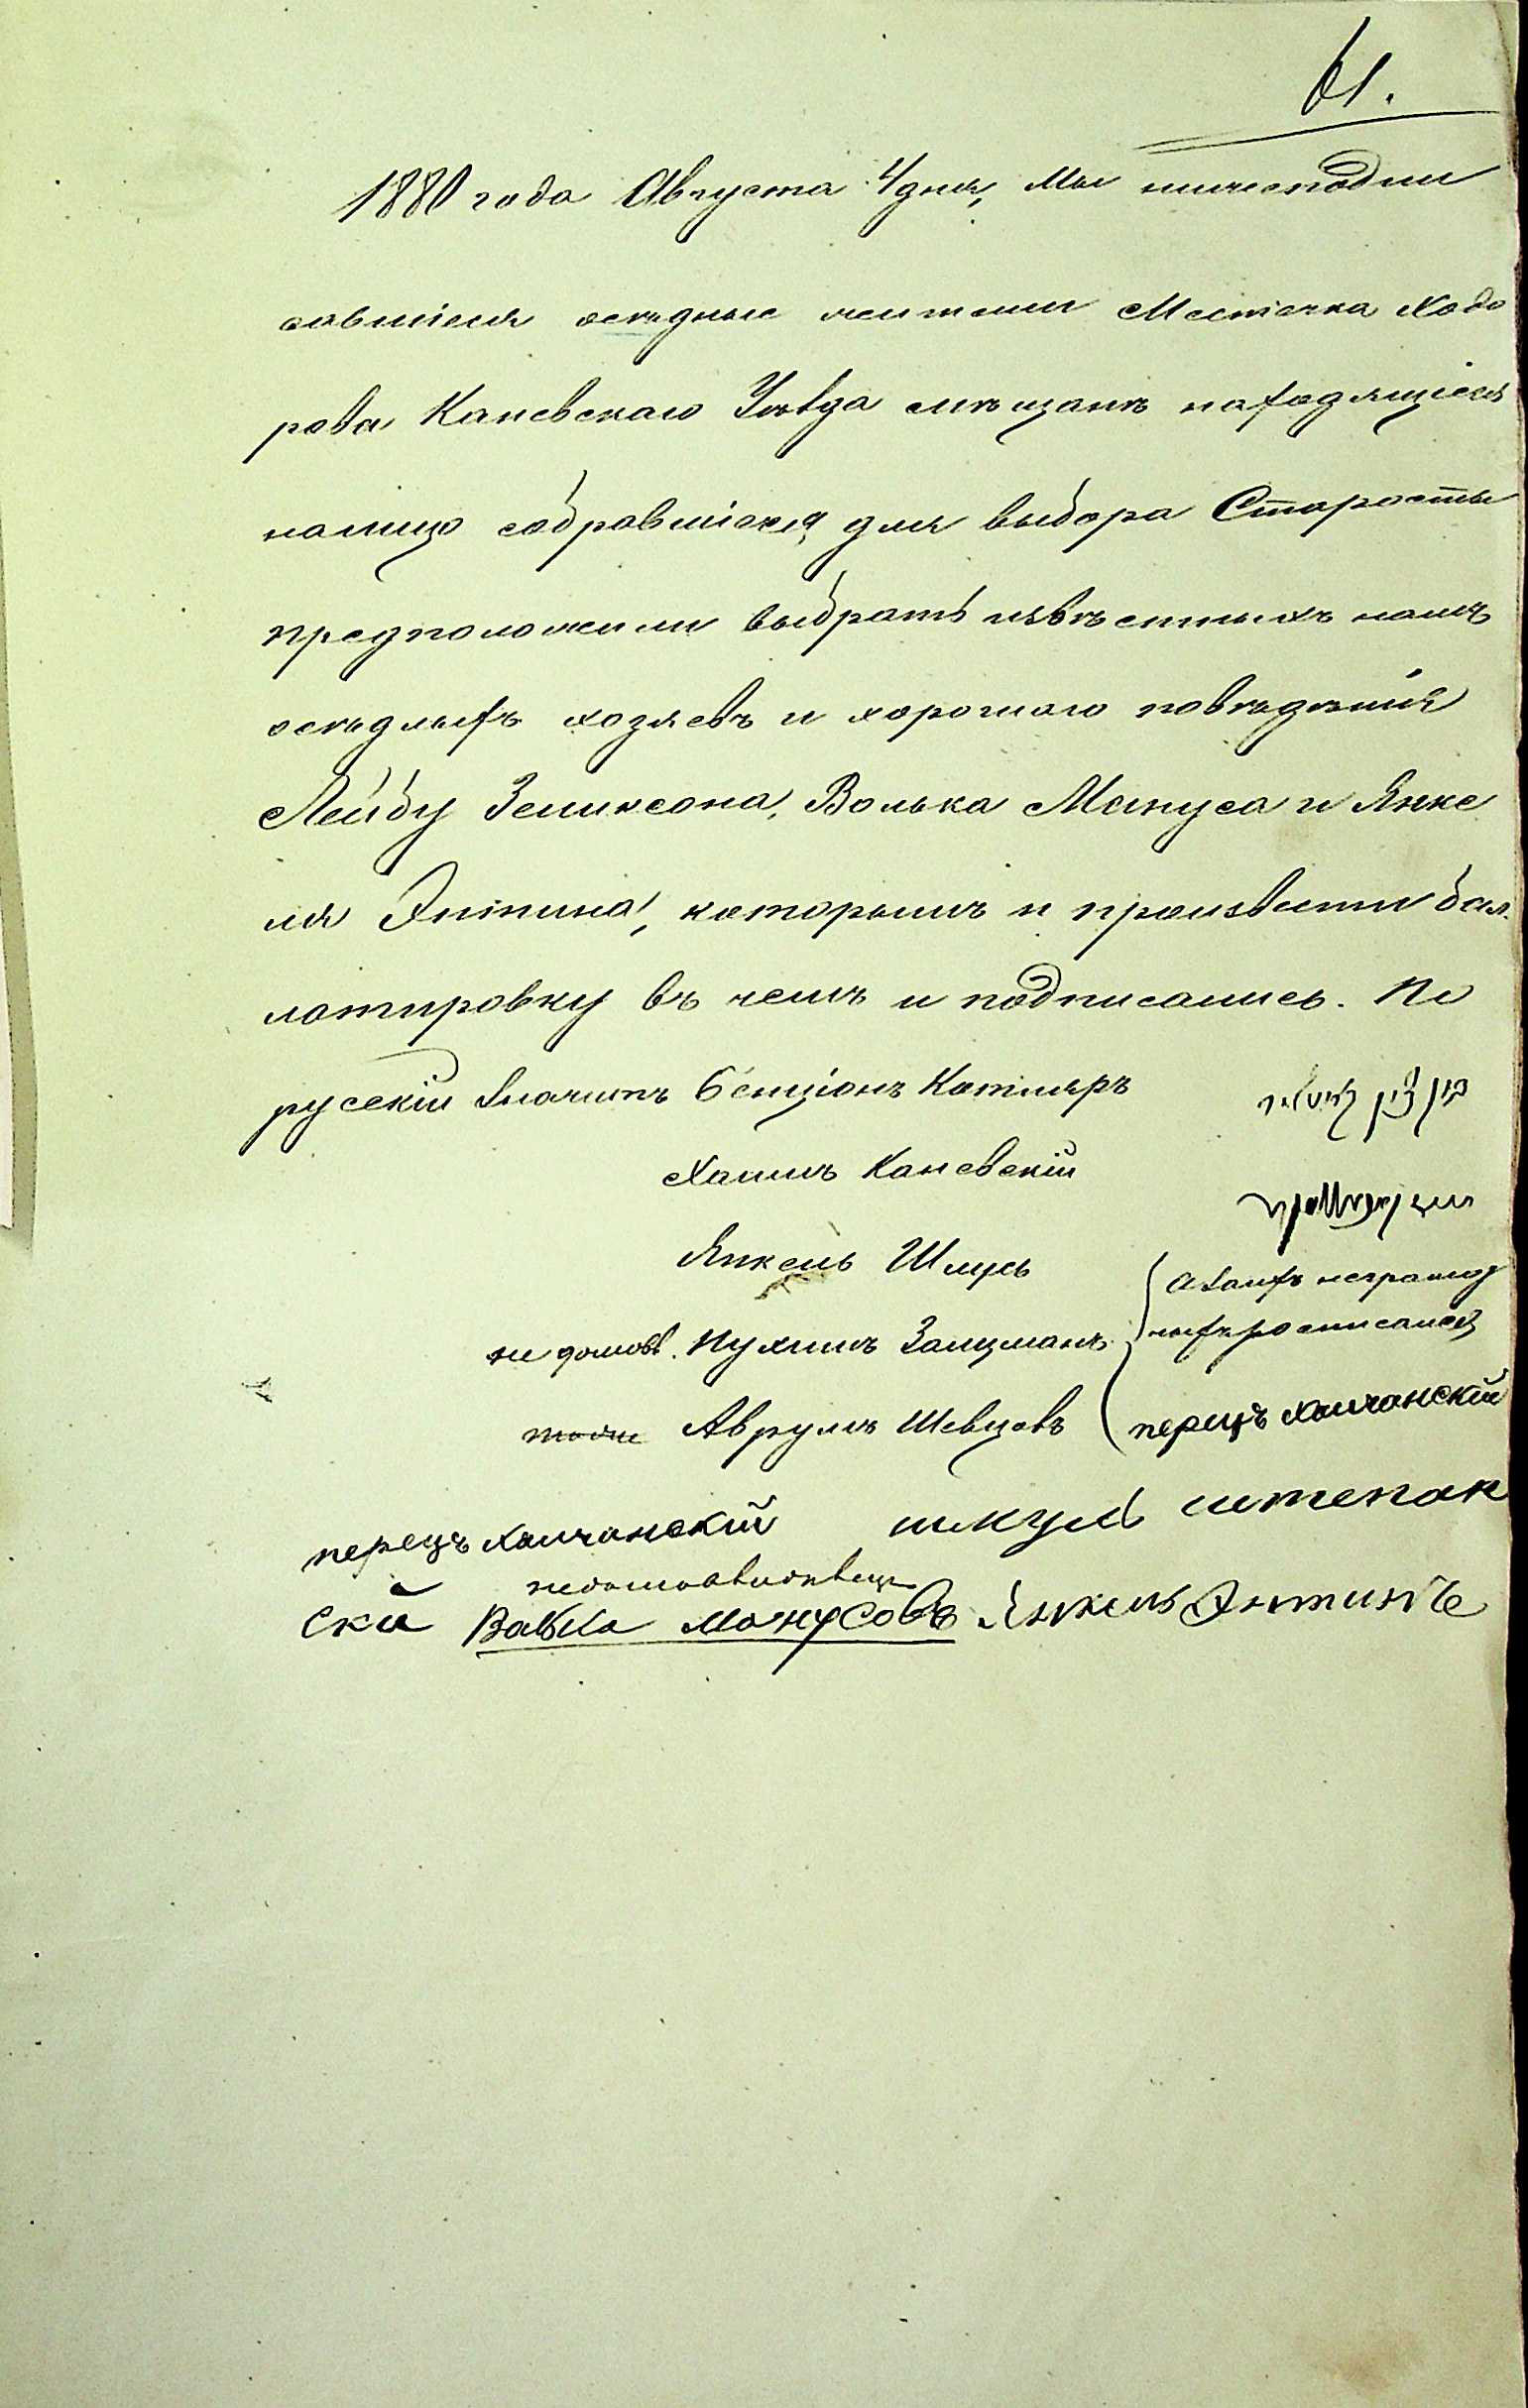 61.
1880 года Августа 4 дня, Мы нижеподпи
савшіеся осѣдлые жители Местечка Ходо
рова Каневскаго Уѣзда мѣщане находящіеся
налицо собравшіеся для выбора Старосты
предположили выбрать извѣстныхъ намъ
осѣдлыхъ хозяевъ и хорошаго повѣдѣнія
Лейбу Зеликсона, Волька Мануса и Янке
ля Энтина, которымъ и произвести бал
лотировку въ чемъ и подписались. По
русскіи значитъ Бенціонъ Котляръ בן ציון קאטליר
Хаимъ Каневскій
Янкель Шмусь
не домовл. Нухимъ Залцманъ
тоже Аврумъ Шевцовъ
а за нихъ неграмот
ныхъ росписался
перецъ Халчанскій
перецъ Халчанскій шмуль штепан
ски
недомовладѣлец
Волка Манусовъ Янкель Энтинъ